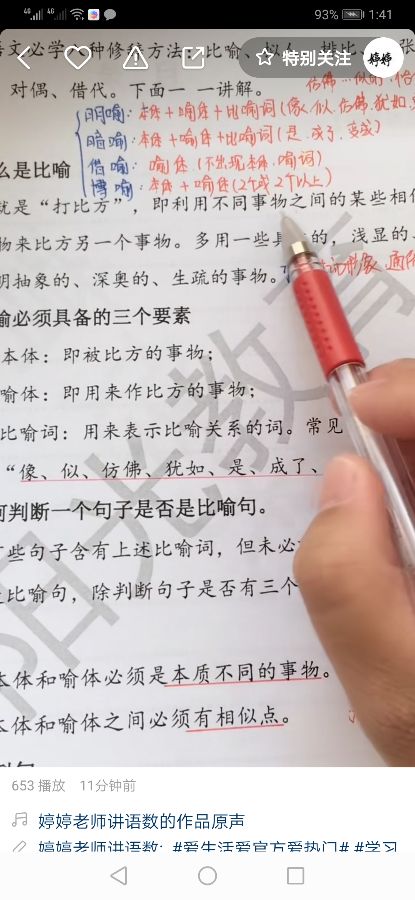 93% 1:41
语文必学 种修辞方法：比喻、拟人、排比、 张
对偶、借代。下面一一讲解。
特别关注 婷婷
明喻：本体+喻体+比喻词（像、似、仿佛、犹如、
暗喻：本体+喻体+比喻词（是、成了、变成）
借喻：喻体（不出现本体、喻词）
博喻：本体+喻体（2个或2个以上）
么是比喻
就是“打比方”，即利用不同事物之间的某些相似
物来比方另一个事物。多用一些具 的，浅显的、
明抽象的、深奥的、生疏的事物。
喻必须具备的三个要素
本体：即被比方的事物；
喻体：即用来作比方的事物；
比喻词：用来表示比喻关系的词。常见
“像、似、仿佛、犹如、是、成了、
何判断一个句子是否是比喻句。
些句子含有上述比喻词，但未必
比喻句，除判断句子是否有三个
本体和喻体必须是本质不同的事物。
本体和喻体之间必须有相似点。
阳光教育
653 播放 11分钟前
婷婷老师讲语数的作品原声
婷婷老师讲语数: #爱生活爱官方爱热门# #学习